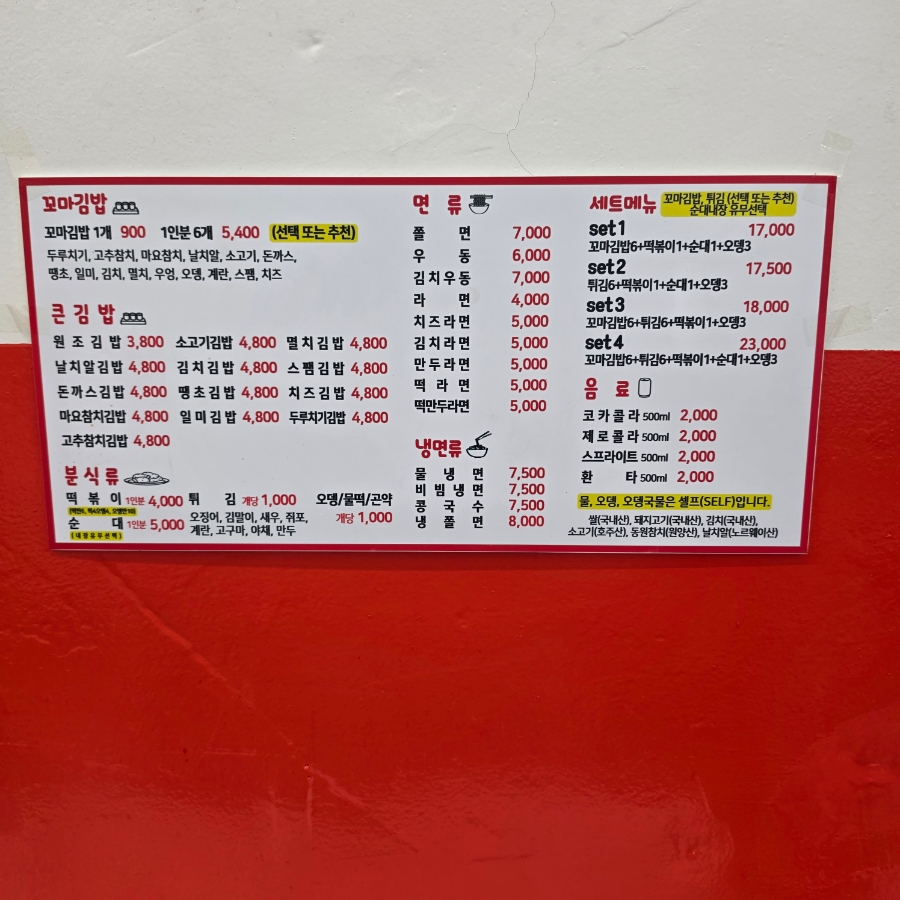 꼬마김밥
꼬마김밥 1개 900 1인분 6개 5,400 (선택 또는 추천)
두루치기, 고추참치, 마요참치, 날치알, 소고기, 돈까스,
땡초, 일미, 김치, 멸치, 우엉, 오뎅, 계란, 스팸, 치즈
큰김밥
원조김밥 3,800 소고기김밥 4,800 멸치김밥 4,800
날치알김밥 4,800 김치김밥 4,800 스팸김밥 4,800
돈까스김밥 4,800 땡초김밥 4,800 치즈김밥 4,800
마요참치김밥 4,800 일미김밥 4,800 두루치기김밥 4,800
고추참치김밥 4,800
분식류
떡볶이 1인분 4,000
순대 1인분 5,000
(내장유무선택)
튀김 개당 1,000
오징어, 김말이, 새우, 쥐포,
계란, 고구마, 야채, 만두
오뎅/물떡/곤약
개당 1,000
면류
쫄면 7,000
우동 6,000
김치우동 7,000
라면 4,000
치즈라면 5,000
김치라면 5,000
만두라면 5,000
떡라면 5,000
떡만두라면 5,000
냉면류
물냉면 7,500
비빔냉면 7,500
콩국수 7,500
냉쫄면 8,000
세트메뉴 꼬마김밥, 튀김 (선택 또는 추천)
순대내장 유무선택
set1 17,000
꼬마김밥6+떡볶이1+순대1+오뎅3
set2 17,500
튀김6+떡볶이1+순대1+오뎅3
set3 18,000
꼬마김밥6+튀김6+떡볶이1+오뎅3
set4 23,000
꼬마김밥6+튀김6+떡볶이1+순대1+오뎅3
음료
코카콜라 500ml 2,000
제로콜라 500ml 2,000
스프라이트 500ml 2,000
환타 500ml 2,000
물, 오뎅, 오뎅국물은 셀프(SELF)입니다.
쌀(국내산), 돼지고기(국내산), 김치(국내산),
소고기(호주산), 동원참치(원양산), 날치알(노르웨이산)